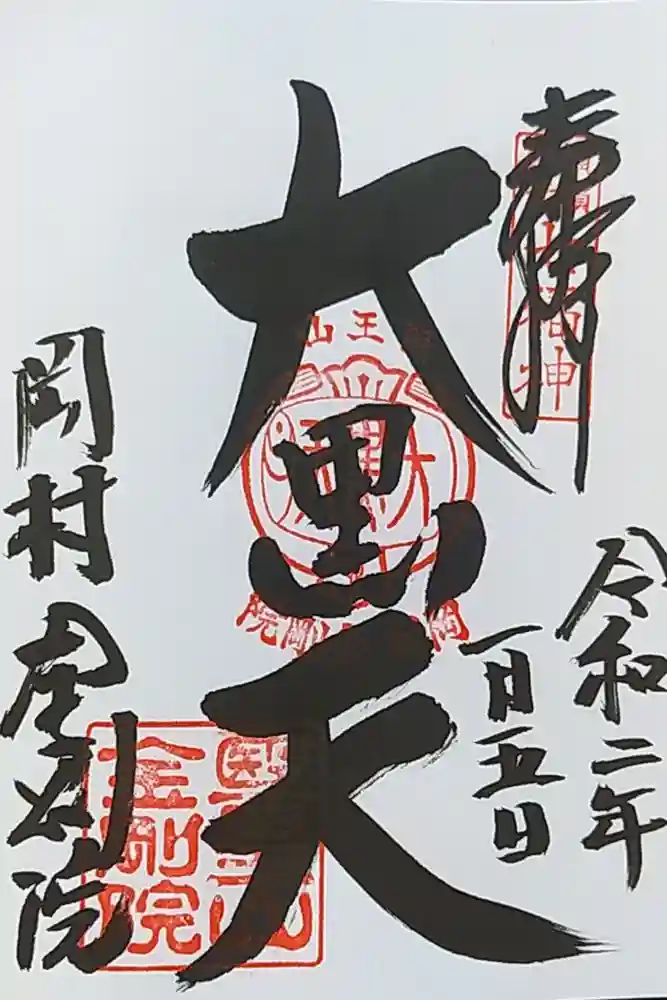 奉拝
七福神
令和二年
一月五日
大黒天
岡村 金剛院
王山
金剛院